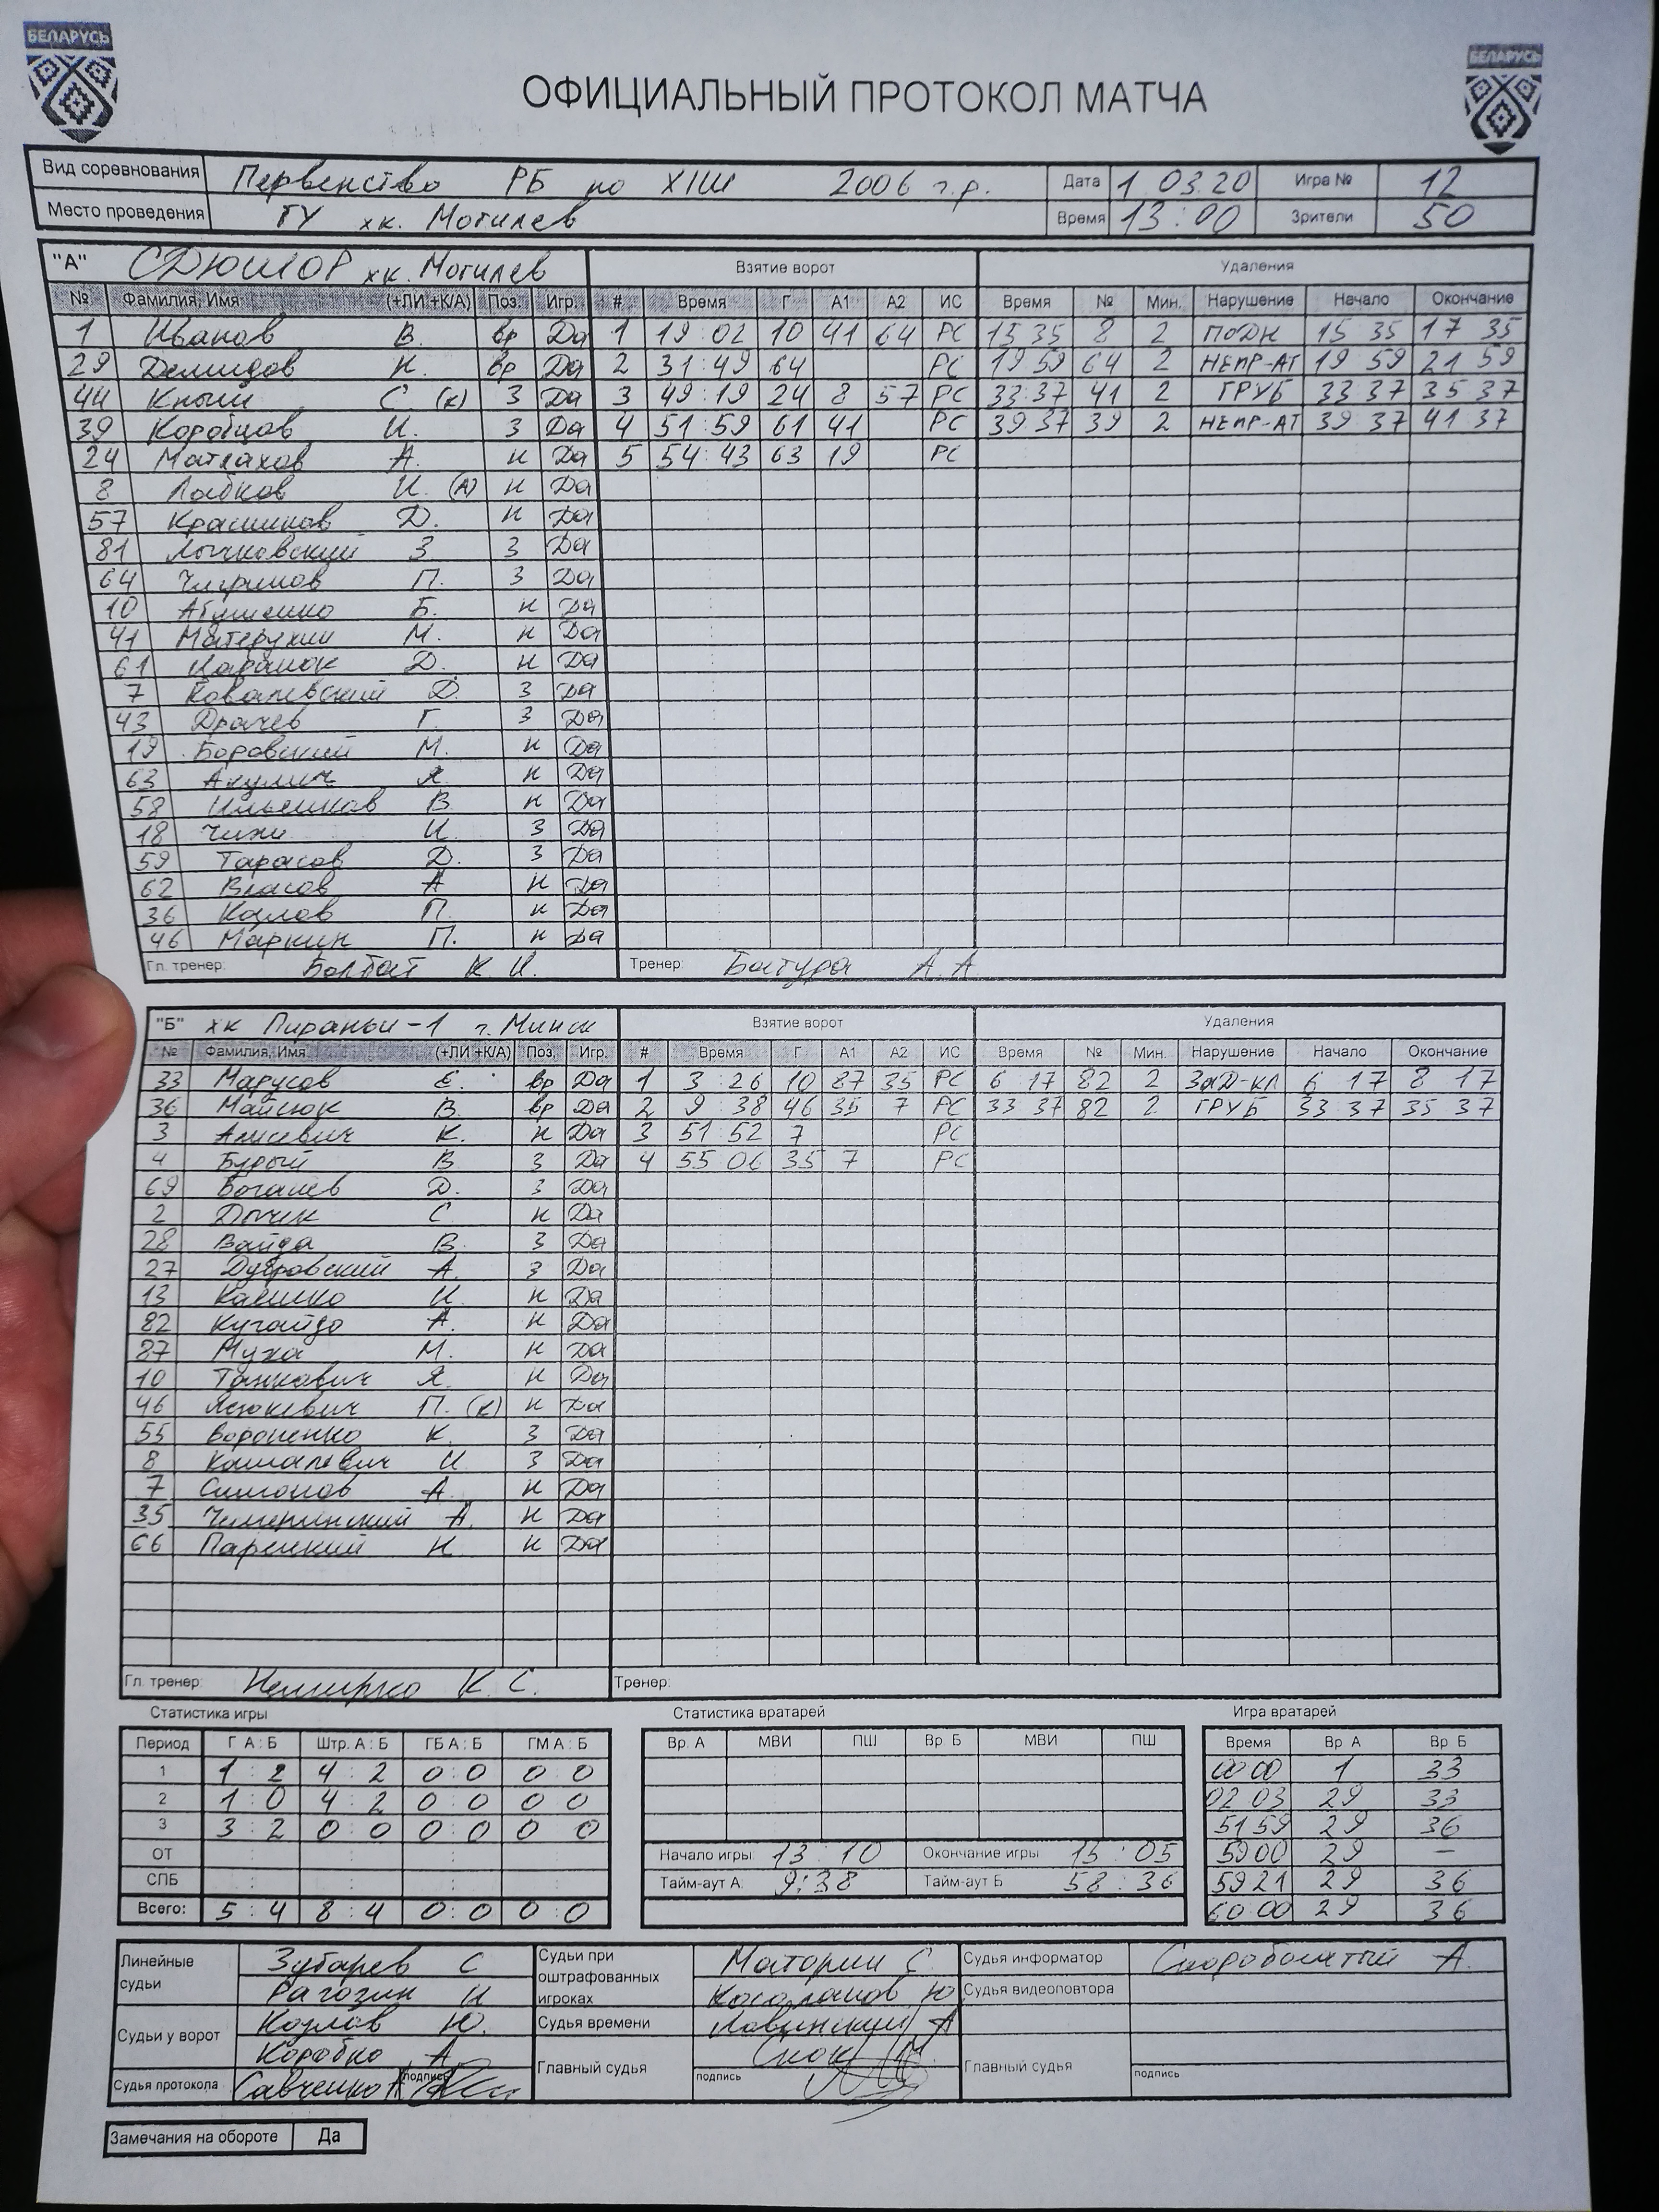 БЕЛАРУСЬ
БЕЛАРУСЬ
ОФИЦИАЛЬНЫЙ ПРОТОКОЛ МАТЧА
Вид соревнования Первенство РБ по ХІШ 2006 г.р. Дата 1 03.20 Игра № 12
Место проведения ГУ хк. Могилев Время 13:00 Зрители 50
"А" СДЮШОР хк. Могилев Взятие ворот Удаления
№ Фамилия, Имя (+ЛИ +К/А) Поз. Игр. # Время Г А1 А2 ИС Время № Мин. Нарушение Начало Окончание
1 Иванов В. вр Да 1 19:02 10 41 64 РС 15 35 8 2 ПОДН 15 35 17 35
29 Демидов Н. вр Да 2 31:49 64 РС 19 59 64 2 НЕПР-АТ 19 59 21 59
44 С (к) З Да 3 49:19 24 8 57 РС 33:37 41 2 ГРУБ 33 37 35 37
39 Коробцов И. З Да 4 51:59 61 41 РС 39 37 39 2 НЕПР-АТ 39 37 41 37
24 Матлахов А. Н Да 5 54:43 63 19 РС
8 Лобков И. (А) Н Да
57 Д. Н Да
81 З З Да
64 П. З Да
10 Б. Н Да
41 Матерухин М. Н Да
61 Д. Н Да
7 Ковалевский Д. З Да
43 Драчев Г. З Да
19 Боровский М. Н Да
63 Акулич Я. Н Да
58 В Н Да
18 Чижи И. З Да
59 Тарасов Д. З Да
62 Власов А Н Да
36 Козлов П. Н Да
46 Маркин П. Н Да
Гл. тренер: Болбат К И. Тренер: Батура А.А
"Б" хк Пираньи-1 г. Минск Взятие ворот Удаления
№ Фамилия, Имя (+ЛИ +К/А) Поз. Игр. # Время Г А1 А2 ИС Время № Мин. Нарушение Начало Окончание
33 Марусов Е. вр Да 1 3:26 10 87 35 РС 6 17 82 2 ЗАД-КЛ 6 17 8 17
36 Майсюк В. вр Да 2 9:38 46 35 7 РС 33 37 82 2 ГРУБ 33 37 35 37
3 Анисевич К. Н Да 3 51 52 7 РС
4 Бурый В З Да 4 55 06 35 7 РС
69 Д. З Да
2 С Н Да
28 Вайда В. З Да
27 Дубровский А. З Да
13 И Н Да
82 Кугайдо А. Н Да
87 Муха М. Н Да
10 Танкович Я. Н Да
46 Язокевич П. (к) Н Да
55 Вороненко К. З Да
8 И З Да
7 Симонов А. Н Да
35 Чемеринский А. Н Да
66 Н Н Да
Гл. тренер: Немирко К С. Тренер:
Статистика игры Статистика вратарей Игра вратарей
Период Г А : Б Штр. А : Б ГБ А : Б ГМ А : Б Вр. А МВИ ПШ Вр. Б МВИ ПШ Время Вр А Вр Б
1 1 : 2 4 : 2 0 : 0 0 0 00 00 1 33
2 1 : 0 4 : 2 0 : 0 0 0 02 03 29 33
3 3 : 2 0 : 0 0 : 0 0 0 51 59 29 36
ОТ : : : Начало игры 13 : 10 Окончание игры 15 : 05 59 00 29 —
СПБ : : : Тайм-аут А: 9:38 Тайм-аут Б 58 : 36 59 21 29 36
Всего: 5 : 4 8 : 4 0 : 0 0 : 0 60 00 29 36
Линейные судьи Зубарев С Судьи при оштрафованных игроках Маторин С. Судья информатор Скоробогатый А.
Рагозин И Ю Судья видеоповтора
Судьи у ворот Козлов Ю. Судья времени Ловинский А
Коробко А Главный судья Главный судья
Судья протокола Савченко А подпись подпись подпись
Замечания на обороте Да